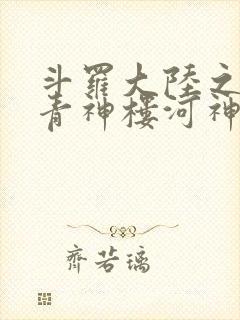 斗羅大陸之
青神樓河神
齊若璃